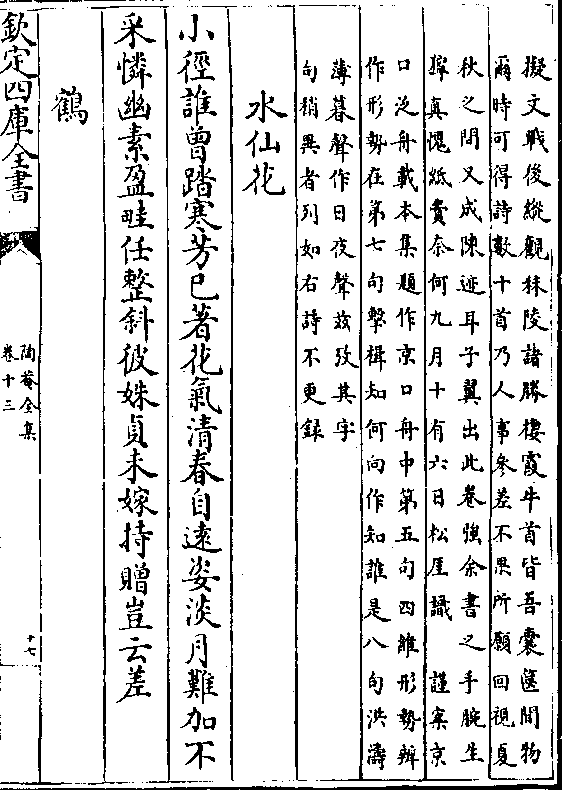 擬文戰後縱觀秣陵諸勝棲霞牛首皆吾囊篋間物
爾時可得詩數十首乃人事參差不果所願回視夏
秋之間又成陳迹耳子翼出此卷強余書之手腕生
澥真愧紙貴奈何九月十有六日松厓識　謹案京
口泛舟載本集題作京口舟中第五句四維形勢辨
作形勢在第七句擊楫知何向作知誰是八句洪濤
薄暮聲作日夜聲茲攷其字
句稍異者列如右詩不更録
水仙花
小徑誰曾踏寒芳已著花氣清春自遠姿淡月難加不
采憐幽素盈畦任整斜彼姝貞未嫁持贈豈云差
鶴
欽定四庫全書
陶菴全集
卷十三
十七